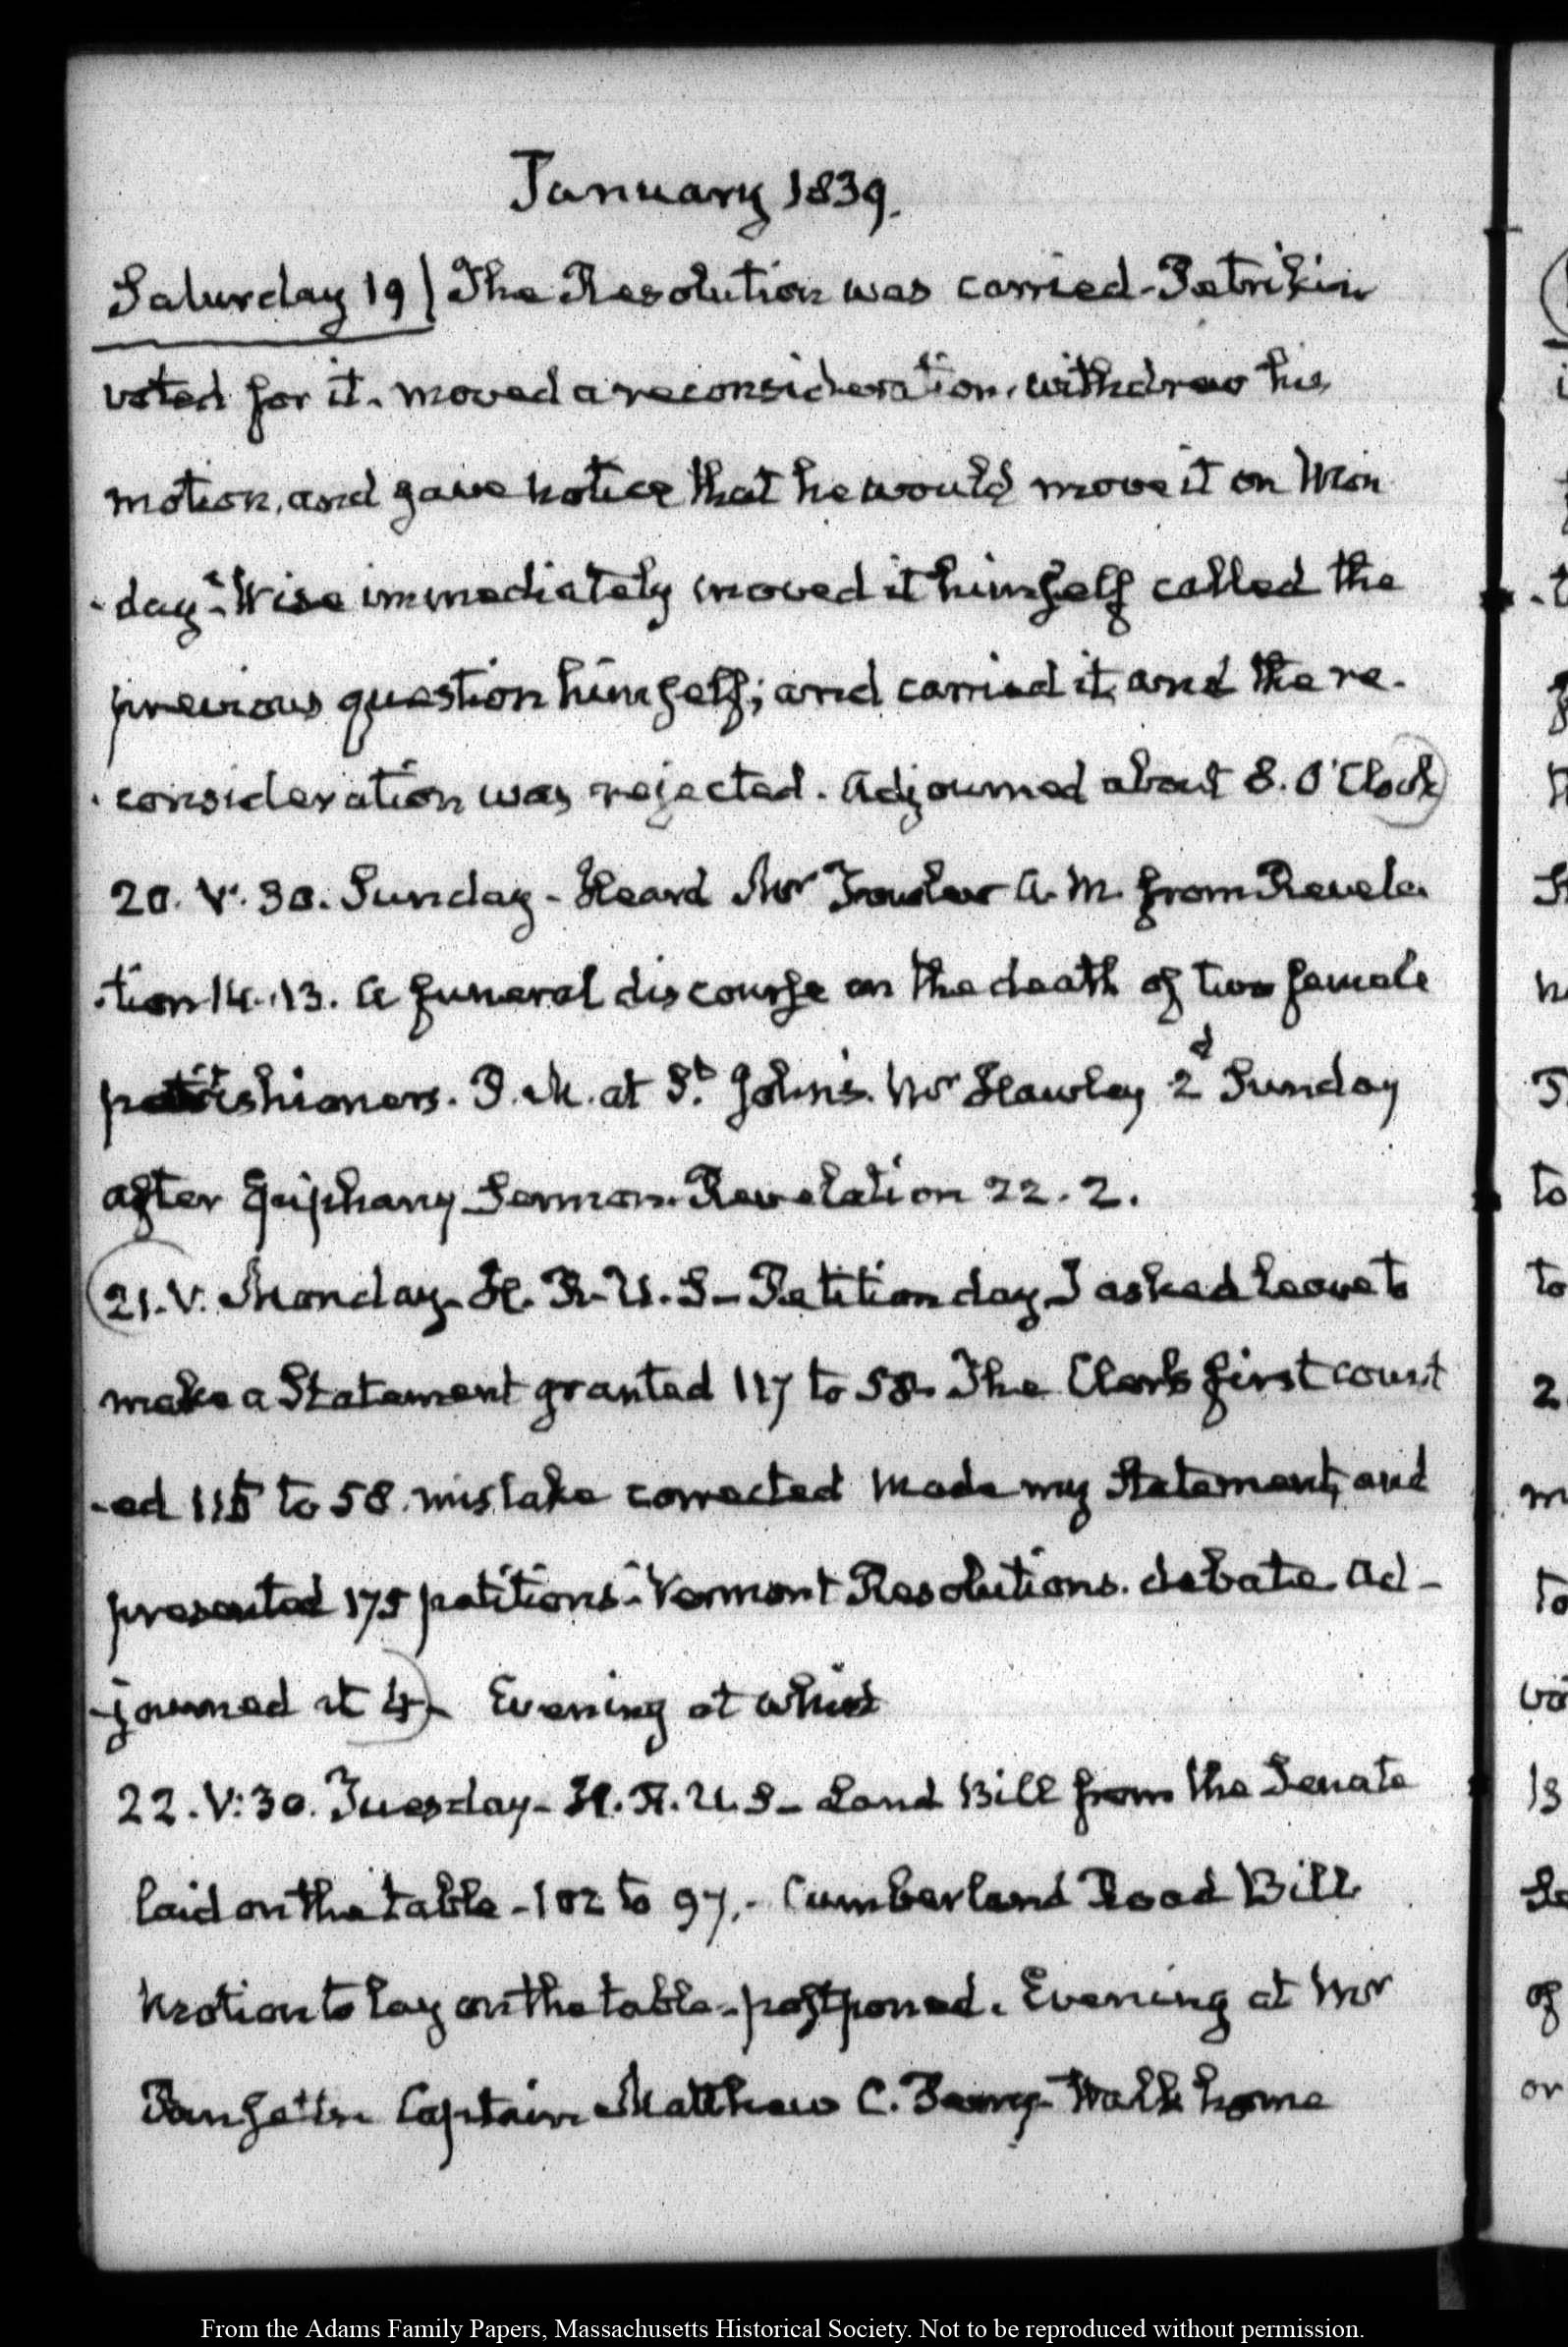 January 1839.
Saturday 19 | The Resolution was carried - Petrikin
voted for it. moved a reconsideration, withdrew his
motion, and gave notice that he would move it on Mon
-day - Wise immediately moved it himself called the
previous question himself; and carried it, and the re-
-consideration was rejected. Adjourned about 8. O'Clock)
20. V. 30. Sunday - Heard Mr Fowler A. M. from Revela
-tion 14. 13. A funeral discourse on the death of two female
parishioners. P. M. at St. John's. Mr Hawley 2d Sunday
after Epiphany Sermon. Revelation 22. 2.
(21. V. Monday - H. R. U. S - Petition day I asked leave to
make a Statement granted 117 to 58. The Clerk first count
-ed 115 to 58. mistake corrected Made my Statement, and
presented 175 petitions - Vermont Resolutions. debate. Ad-
-journed at 4) - Evening at whist
22. V: 30. Tuesday - H. R. U. S - Land Bill from the Senate
laid on the table - 102 to 97. - Cumberland Road Bill
Motion to lay on the table - postponed. Evening at Mr
Captain Matthew C. Perry - Walk home
From the Adams Family Papers, Massachusetts Historical Society. Not to be reproduced without permission.